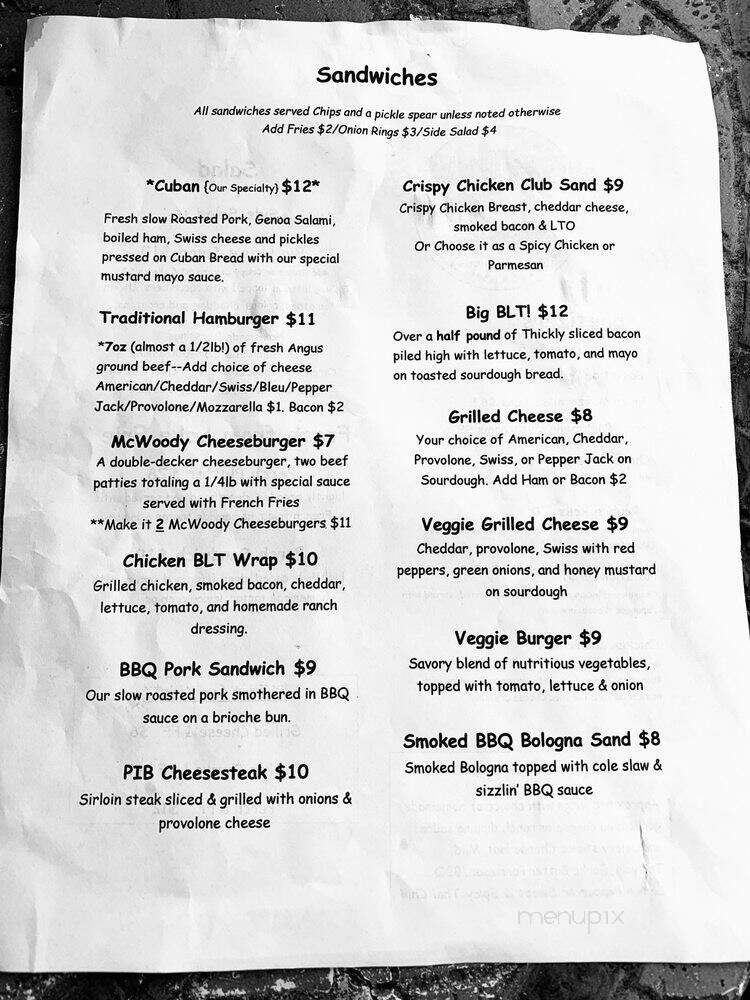 Sandwiches
All sandwiches served Chips and a pickle spear unless noted otherwise
Add Fries $2/Onion Rings $3/Side Salad $4
*Cuban {Our Specialty} $12*
Fresh slow Roasted Pork, Genoa Salami,
boiled ham, Swiss cheese and pickles
pressed on Cuban Bread with our special
mustard mayo sauce.
Traditional Hamburger $11
*7oz (almost a 1/2lb!) of fresh Angus
ground beef--Add choice of cheese
American/Cheddar/Swiss/Bleu/Pepper
Jack/Provolone/Mozzarella $1. Bacon $2
McWoody Cheeseburger $7
A double-decker cheeseburger, two beef
patties totaling a 1/4lb with special sauce
served with French Fries
**Make it 2 McWoody Cheeseburgers $11
Chicken BLT Wrap $10
Grilled chicken, smoked bacon, cheddar,
lettuce, tomato, and homemade ranch
dressing.
BBQ Pork Sandwich $9
Our slow roasted pork smothered in BBQ
sauce on a brioche bun.
PIB Cheesesteak $10
Sirloin steak sliced & grilled with onions &
provolone cheese
Crispy Chicken Club Sand $9
Crispy Chicken Breast, cheddar cheese,
smoked bacon & LTO
Or Choose it as a Spicy Chicken or
Parmesan
Big BLT! $12
Over a half pound of Thickly sliced bacon
piled high with lettuce, tomato, and mayo
on toasted sourdough bread.
Grilled Cheese $8
Your choice of American, Cheddar,
Provolone, Swiss, or Pepper Jack on
Sourdough. Add Ham or Bacon $2
Veggie Grilled Cheese $9
Cheddar, provolone, Swiss with red
peppers, green onions, and honey mustard
on sourdough
Veggie Burger $9
Savory blend of nutritious vegetables,
topped with tomato, lettuce & onion
Smoked BBQ Bologna Sand $8
Smoked Bologna topped with cole slaw &
sizzlin' BBQ sauce
menupix